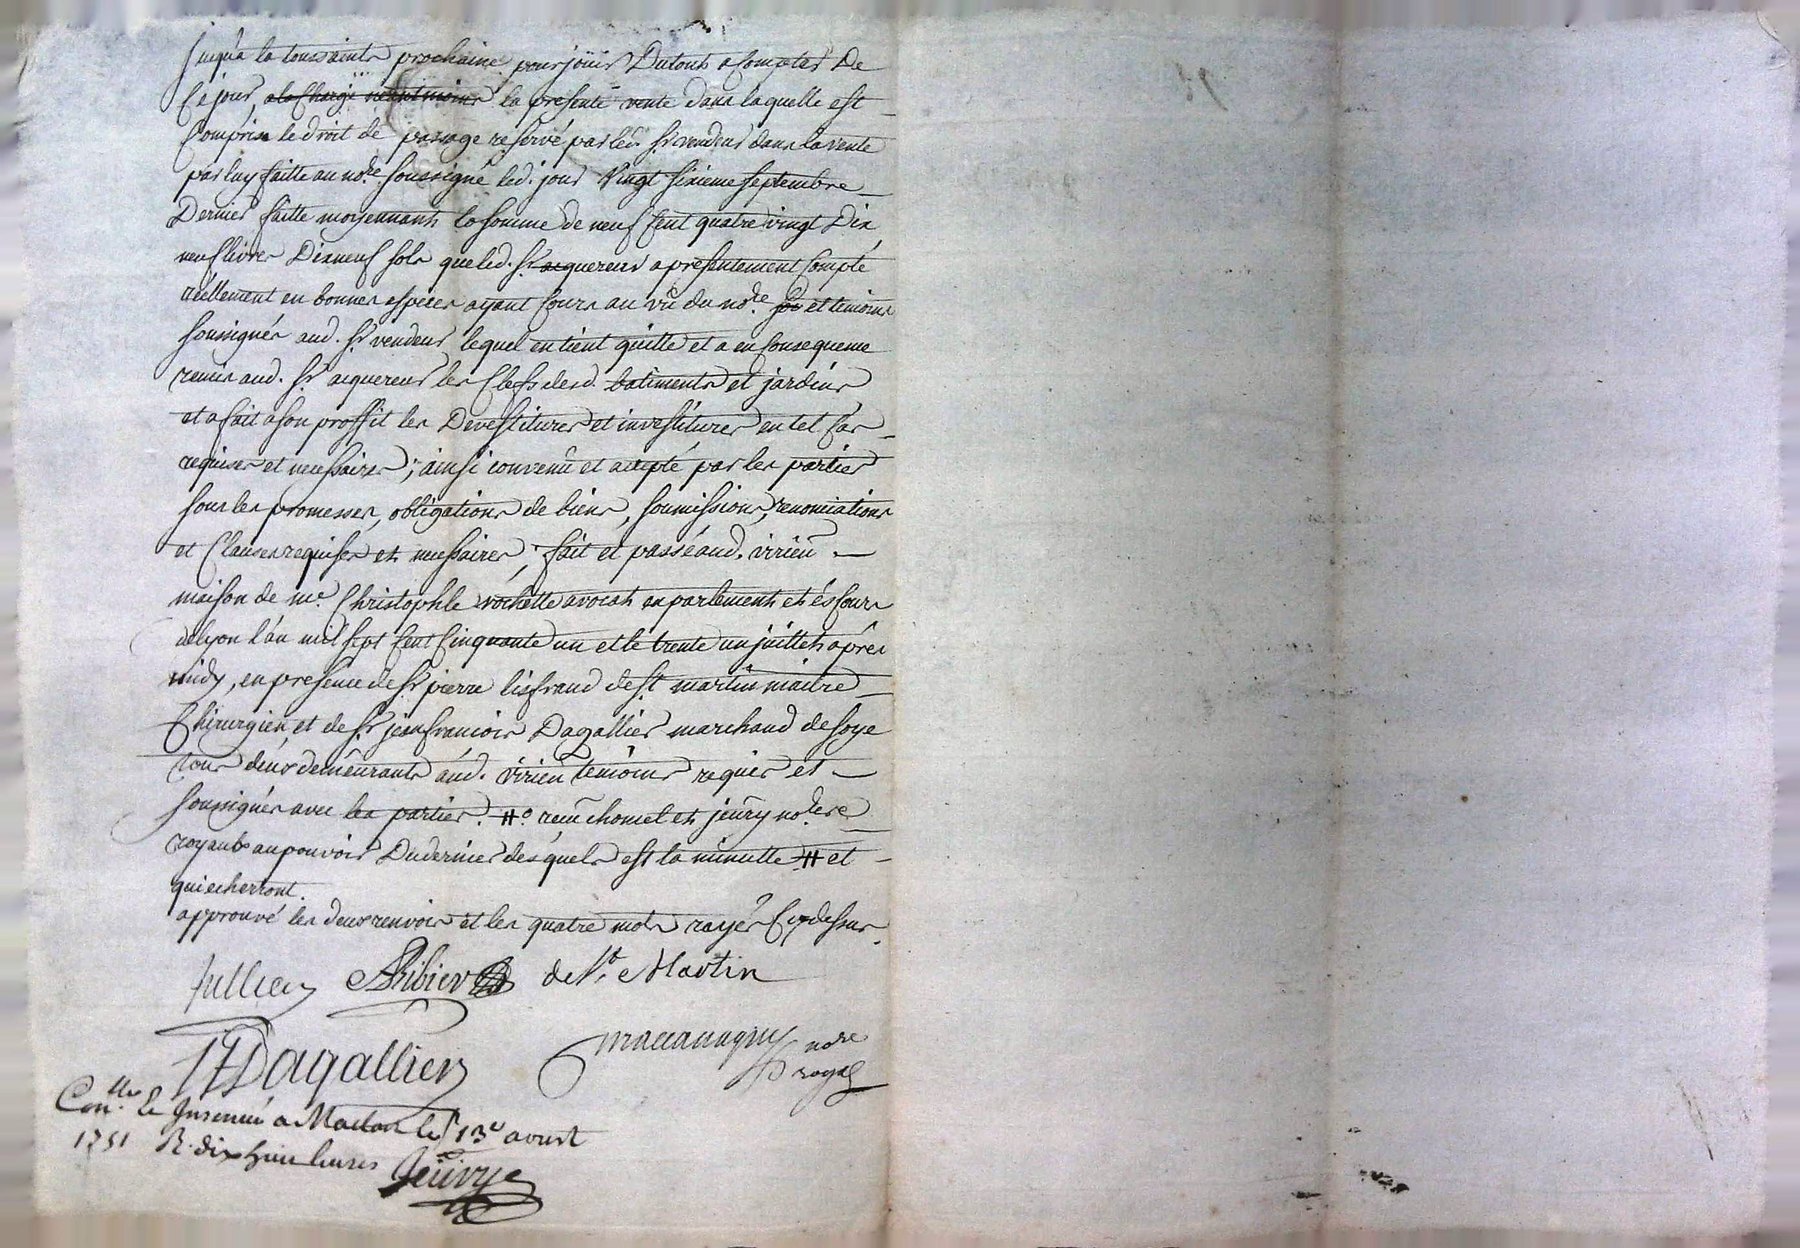 jusqu'a la toussaints prochaine pour joüir Du tout a Compter De
Ce jour, a la Charge neantmoins la presente vente dans laquelle est
Comprise le droit de passage reservé par led. Sr vendeur dans la vente
par luy faitte au nore soussigné led. jour Vingt sixieme septembre
Dernier faitte moyennant la somme de neuf Cent quatre vingt Dix
neuf livres Dixneuf sols que led. Sr acquereur a presentement Compté
réellement en bonnes especes ayant Cours au vû du nore et temoins
soussignés aud. Sr vendeur lequel en tient quitte et a en Consequence
remis aud. Sr acquereur les Clefs desd. batiments et jardins
et a fait a son proffit les Devestitures et investitures en tel Cas
requises et necessaires; ainsi convenû et accepté par les parties
sous les promesses, obligations de biens, soumissions, renonciations
et Clauses requises et necessaires; fait et passé aud. virieu
maison de me. Christophle rochette avocat en parlement et és Cours
de lyon l'an mil sept Cent Cinquante un et le trente un juillet aprés
midy, en presence de Sr pierre lisfrand de St martin maitre
Chirurgien et de Sr jean francois Dagallier marchand de soye
tous deux demeurants aud. virieu temoins requis et
soussignés avec les parties. # receu chomel et jeury nore
royaux au pouvoir Du dernier desquels est la minutte # et
qui echerront.
approuvé les deux renvois et les quatre mots rayés Cy dessus.
Jullien Ribier de St Martin
JF Dagallier nore
royal
Conllé & Insinué a le 13e aoust
1751 R. dix huit livres Jeurye